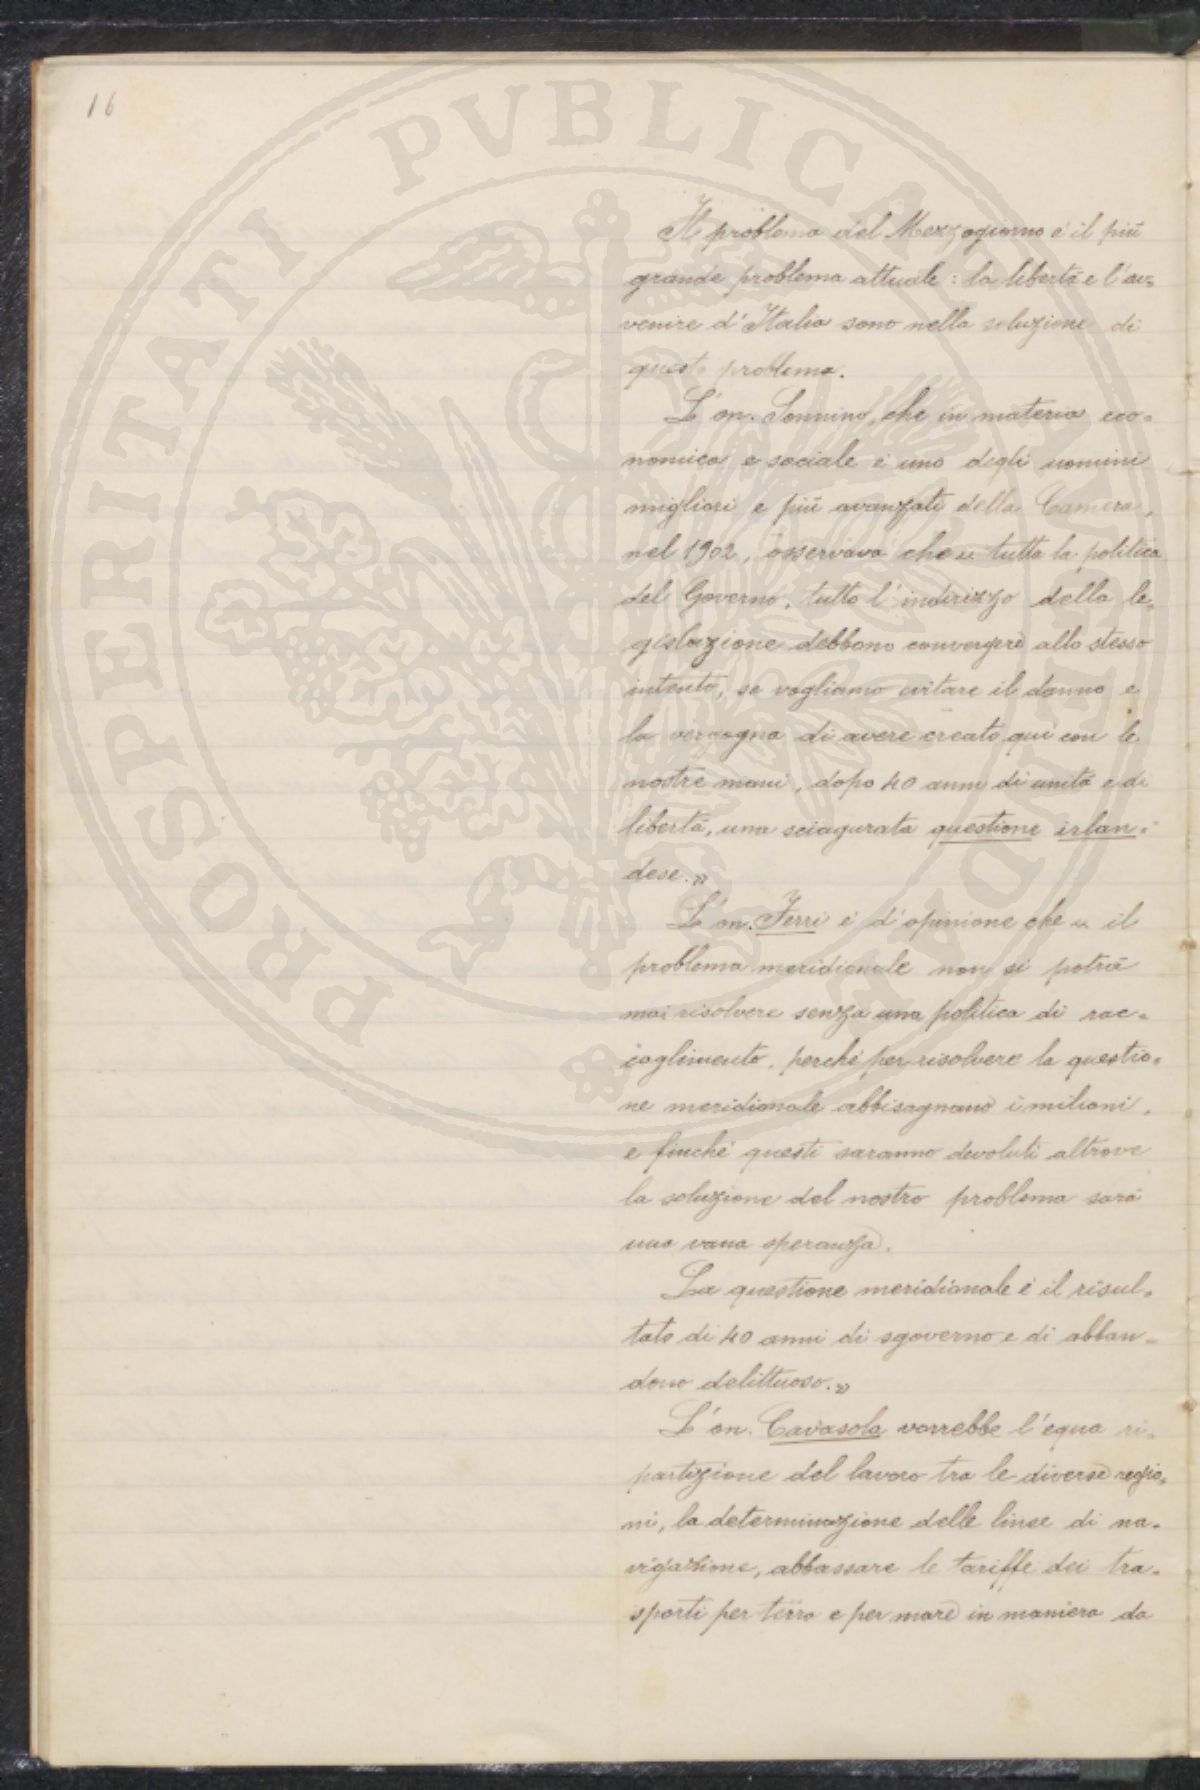 16
PROSPERITATI PVBLICAE AVGENDAE
Il problema del Mezzogiorno è il più
grande problema attuale: la libertà e l'av=
venire d'Italia sono nella soluzione di
questo problema.
L'on. Sonnino, che in materia eco=
nomica e sociale è uno degli uomini
migliori e più avanzati della Camera,
nel 1902, osservava che « tutta la politica
del Governo, tutto l'indirizzo della le=
gislazione debbono convergere allo stesso
intento, se vogliamo evitare il danno e
la vergogna di avere creato qui con le
nostre mani, dopo 40 anni di unità e di
libertà, una sciagurata questione irlan=
dese.»
L'on. Ferri è d'opinione che « il
problema meridionale non si potrà
mai risolvere senza una politica di rac=
coglimento, perché per risolvere la questio=
ne meridionale abbisognano i milioni,
e finché questi saranno devoluti altrove
la soluzione del nostro problema sarà
una vana speranza.
La questione meridionale è il risul=
tato di 40 anni di sgoverno e di abban=
dono delittuoso.»
L'on. Cavasola vorrebbe l'equa ri=
partizione del lavoro tra le diverse regio=
ni, la determinazione delle linee di na=
vigazione, abbassare le tariffe dei tra=
sporti per terra e per mare in maniera da